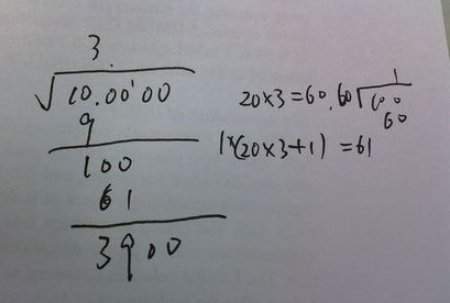 3.
√10.00'00
9
100
61
3900
20×3=60. 60√100
1
60
1×(20×3+1) =61